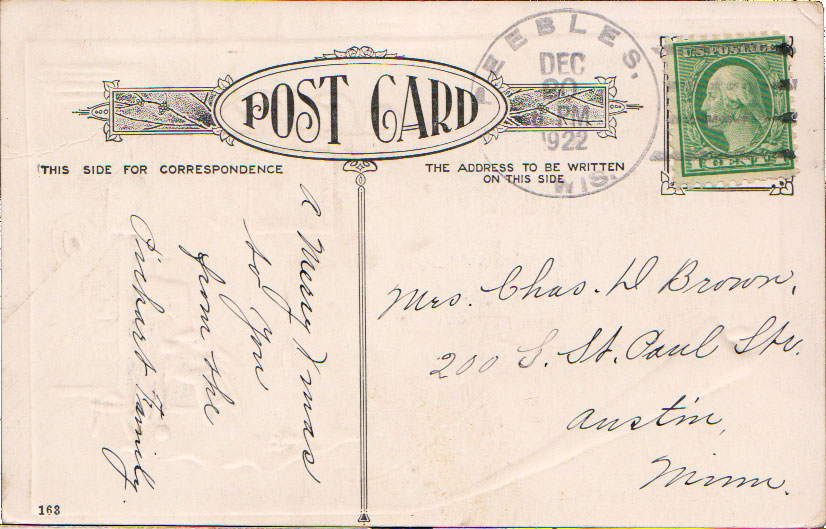 POST CARD
THIS SIDE FOR CORRESPONDENCE
THE ADDRESS TO BE WRITTEN
ON THIS SIDE
PEEBLES,
DEC
20
PM
1922
WIS.
U.S. POSTAGE
1 CENTS 1
A Merry Xmas
to You
from the
Pickart Family.
Mrs. Chas. D Brown,
200 S. St. Paul Str.
Austin,
Minn.
163